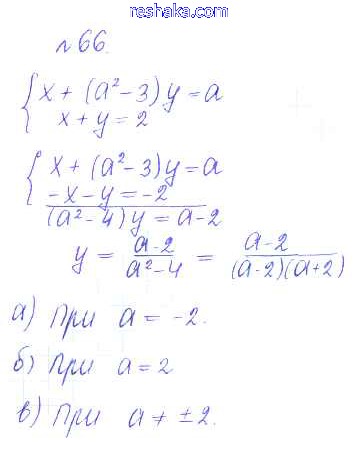 reshaka.com
№66.
{ x + (a² - 3)y = a
x + y = 2
{ x + (a² - 3)y = a
-x - y = -2
(a² - 4)y = a - 2
y = (a - 2)/(a² - 4) = (a - 2)/((a - 2)(a + 2))
а) При a = -2.
б) При a = 2
в) При a ≠ ±2.